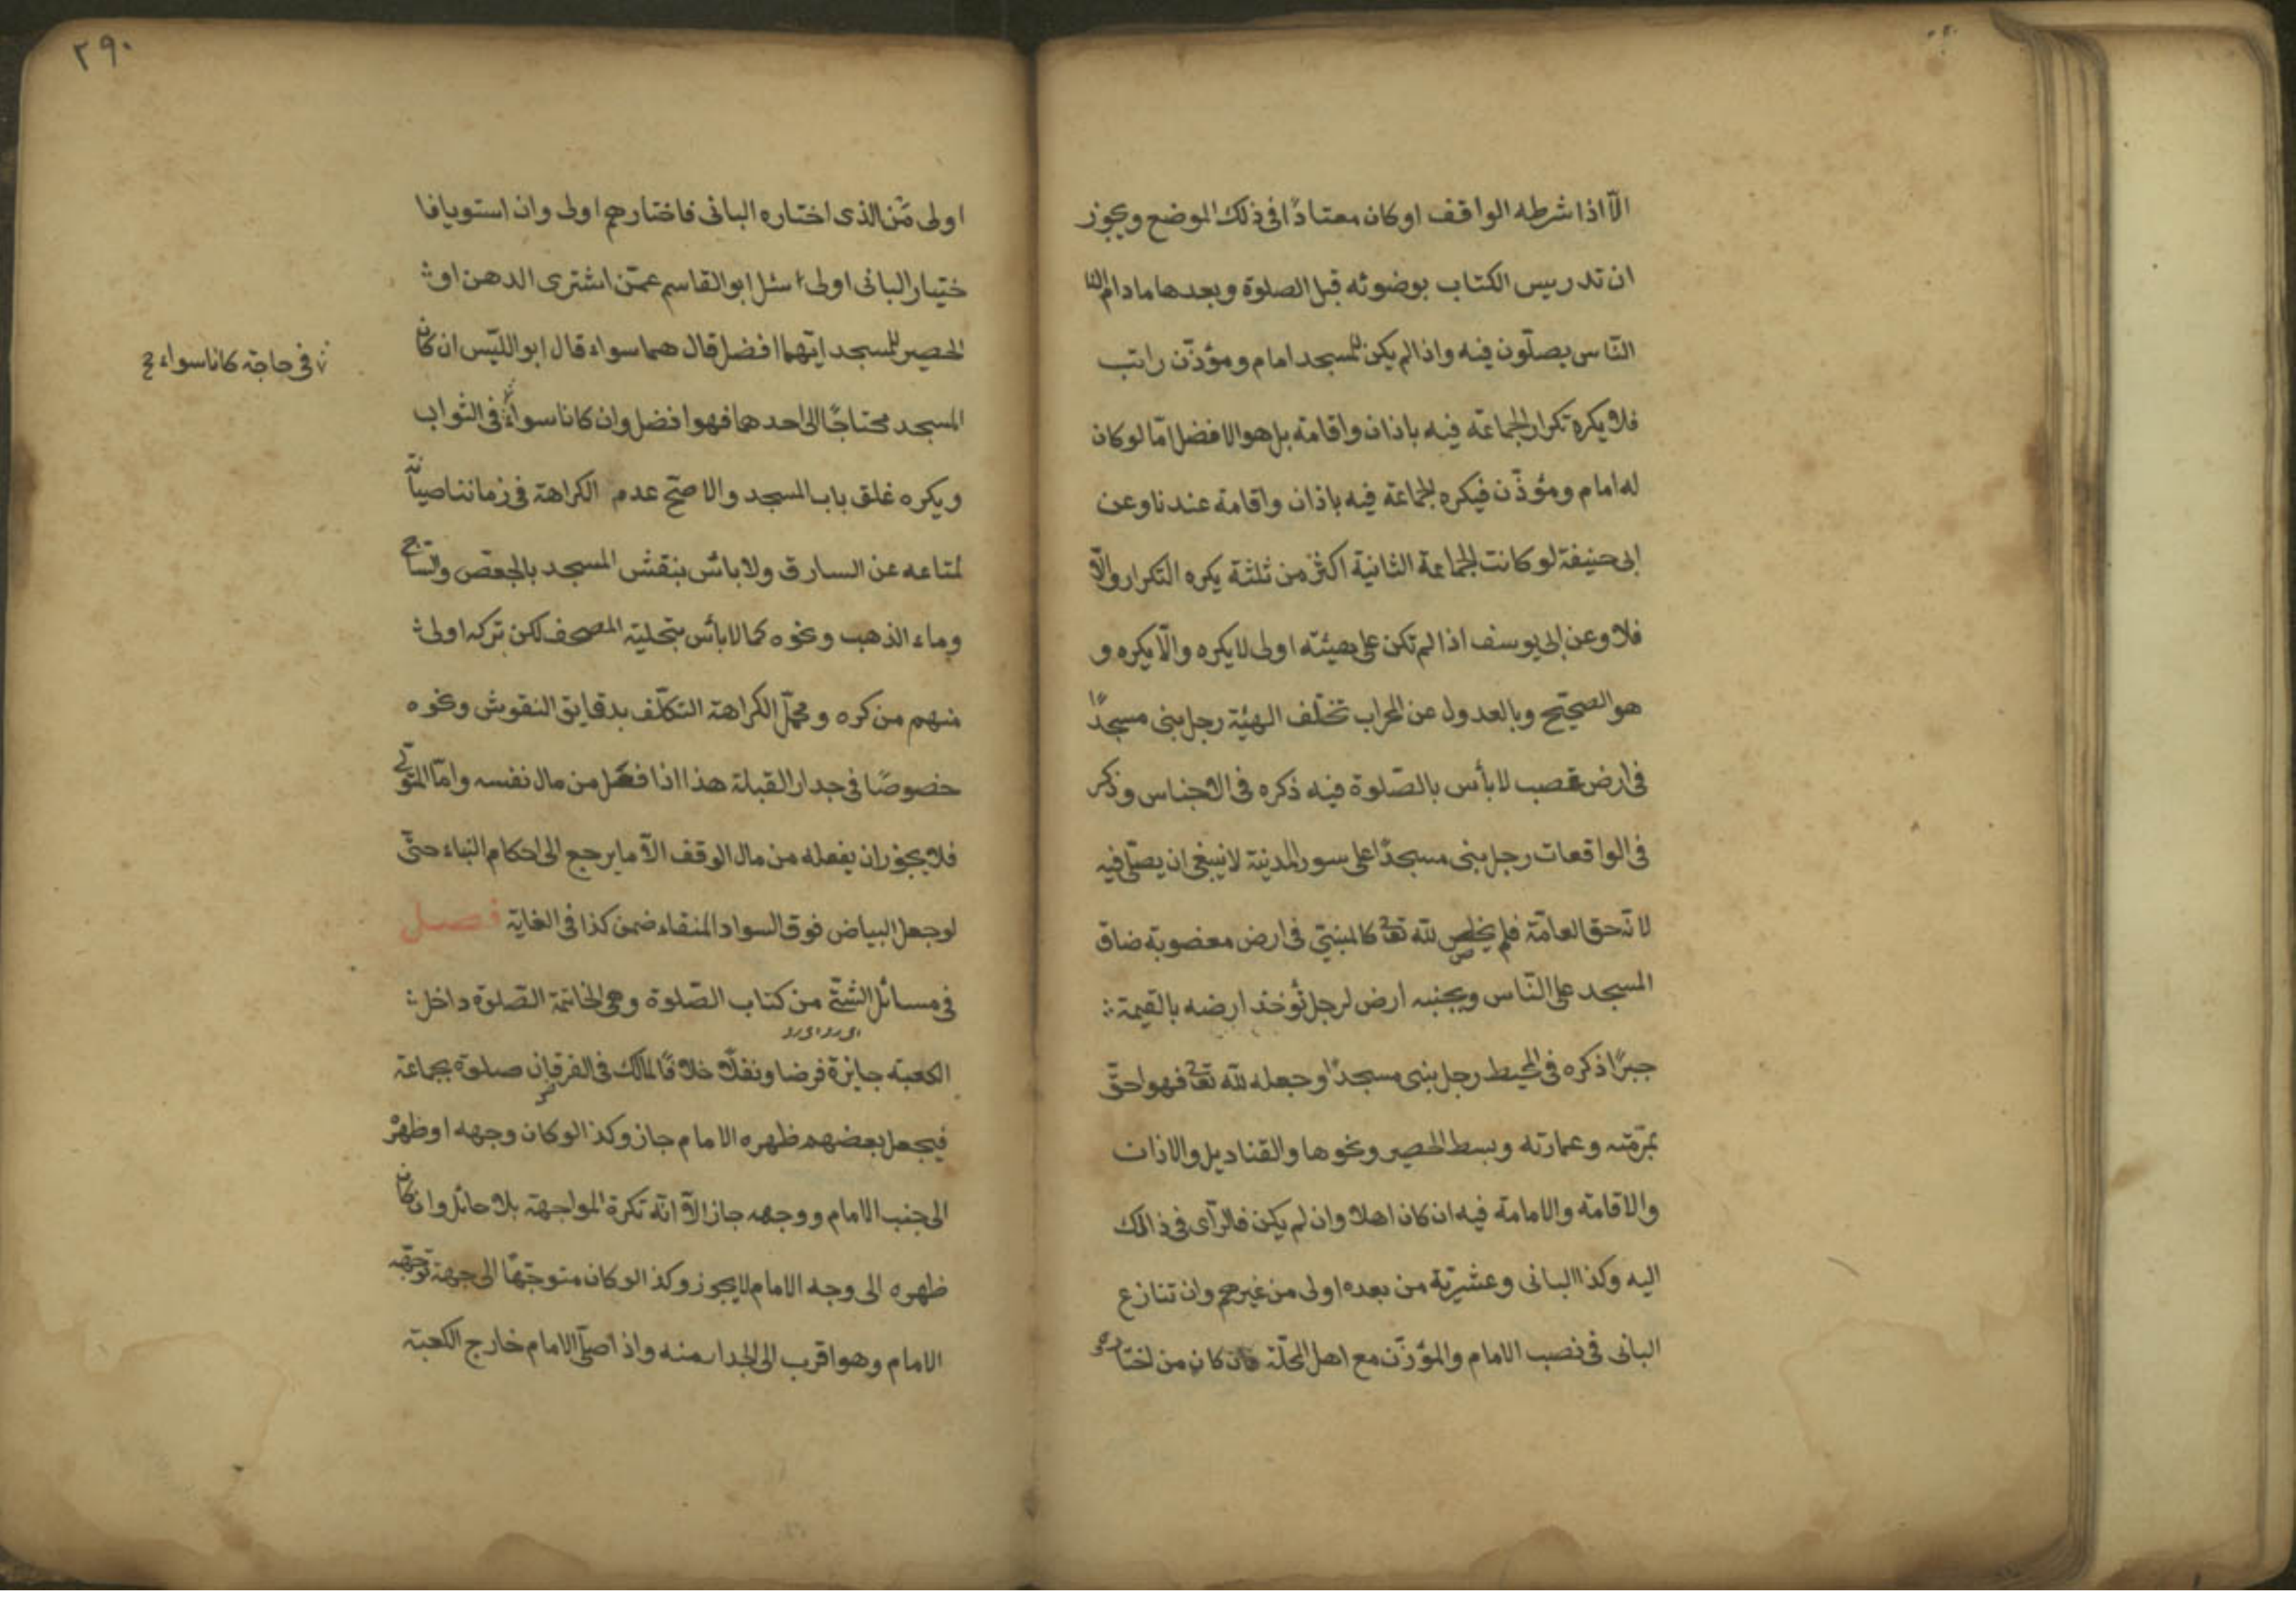 الّا اذا شرطه الواقف او كان معتادًا فى ذلك الموضع ويجوز
ان تدريس الكتاب بوضوئه قبل الصلوة وبعدها مادام النا
النّاس يصلّون فيه واذا لم يكن للمسجد امام ومؤذّن راتب
فلا يكره تكرار الجماعة فيه باذان واقامة بل هو الافضل امّا لو كان
له امام ومؤذّن فيكره الجماعة فيه باذان واقامة عندنا وعن
ابى حنيفة لو كانت الجماعة الثانية اكثر من ثلثة يكره التكرار والّا
فلا وعن ابى يوسف اذا لم تكن على هيئته اولى لا يكره والّا يكره و
هو الصحيح وبالعدول عن المحراب تختلف الهيئة رجل بنى مسجدًا
فى ارض غصب لا بأس بالصّلوة فيه ذكره فى الاجناس وذكر
فى الواقعات رجل بنى مسجدًا على سور المدينة لا ينبغى ان يصلّى فيه
لانّه حق العامّة فلم يخلص لله تعا كالمبنيّ فى ارض مغصوبة ضاق
المسجد على النّاس ويجنبه ارض لرجل تؤخذ ارضه بالقيمة
جبرًا ذكره فى المحيط رجل بنى مسجدًا وجعله لله تعا فهو احقّ
بمرّمته وعمارته وبسط الحصير ونحوها والقناديل والاذان
والاقامة والامامة فيه ان كان اهلا وان لم يكن فالرآى فى ذالك
اليه وكذا البانى وعشيرته من بعده اولى من غيرهم وان تنازع
البانى فى نصب الامام والمؤذّن مع اهل المحلّة فان كان من اختاره
٢٩٠
اولى مّن الذى اختاره البانى فاختارهم اولى وان استويا فا
ختيار البانى اولى سئل ابو القاسم عمّن اشترى الدهن او
الحصير للمسجد ايّهما افضل قال هما سواء قال ابو اللّيس ان كان
فى حاجة كانا سواء
المسجد محتاجًا الى احدهما فهو افضل وان كانا سواءً فى الثواب
ويكره غلق باب المسجد والاصحّ عدم الكراهة فى زماننا صيانة
لمتاعه عن السارق ولا بأس بنقش المسجد بالجصّ والسّاج
وماء الذهب ونحوه كما لا بأس بتحلية المصحف لكن تركه اولى
منهم من كره ومحمل الكراهة التكلّف بدقايق النقوش ونحوه
خصوصًا فى جدار القبلة هذا اذا فعل من مال نفسه وامّا المتولّى
فلا يجوز ان يفعله من مال الوقف الّا ما يرجع الى احكام البناء حتّى
لو جعل البياض فوق السواد المنقاء ضمن كذا فى الغاية فصل
فى مسائل الشتّى من كتاب الصّلوة وهى الخاتمة الصّلوة داخل
الكعبة جايزة فرضا ونفلًا خلافًا لمالك فى الفرض فان صلوة بجماعة
فيجعل بعضهم ظهره الامام جاز وكذا لو كان وجهه او ظهره
الى جنب الامام ووجهه جاز الّا انّه تكرة المواجهة بلا حائل وان كان
ظهره الى وجه الامام لا يجوز وكذا لو كان متوجّهًا الى جهة توجّهه
الامام وهو اقرب الى الجدار منه واذا صلّى الامام خارج الكعبة